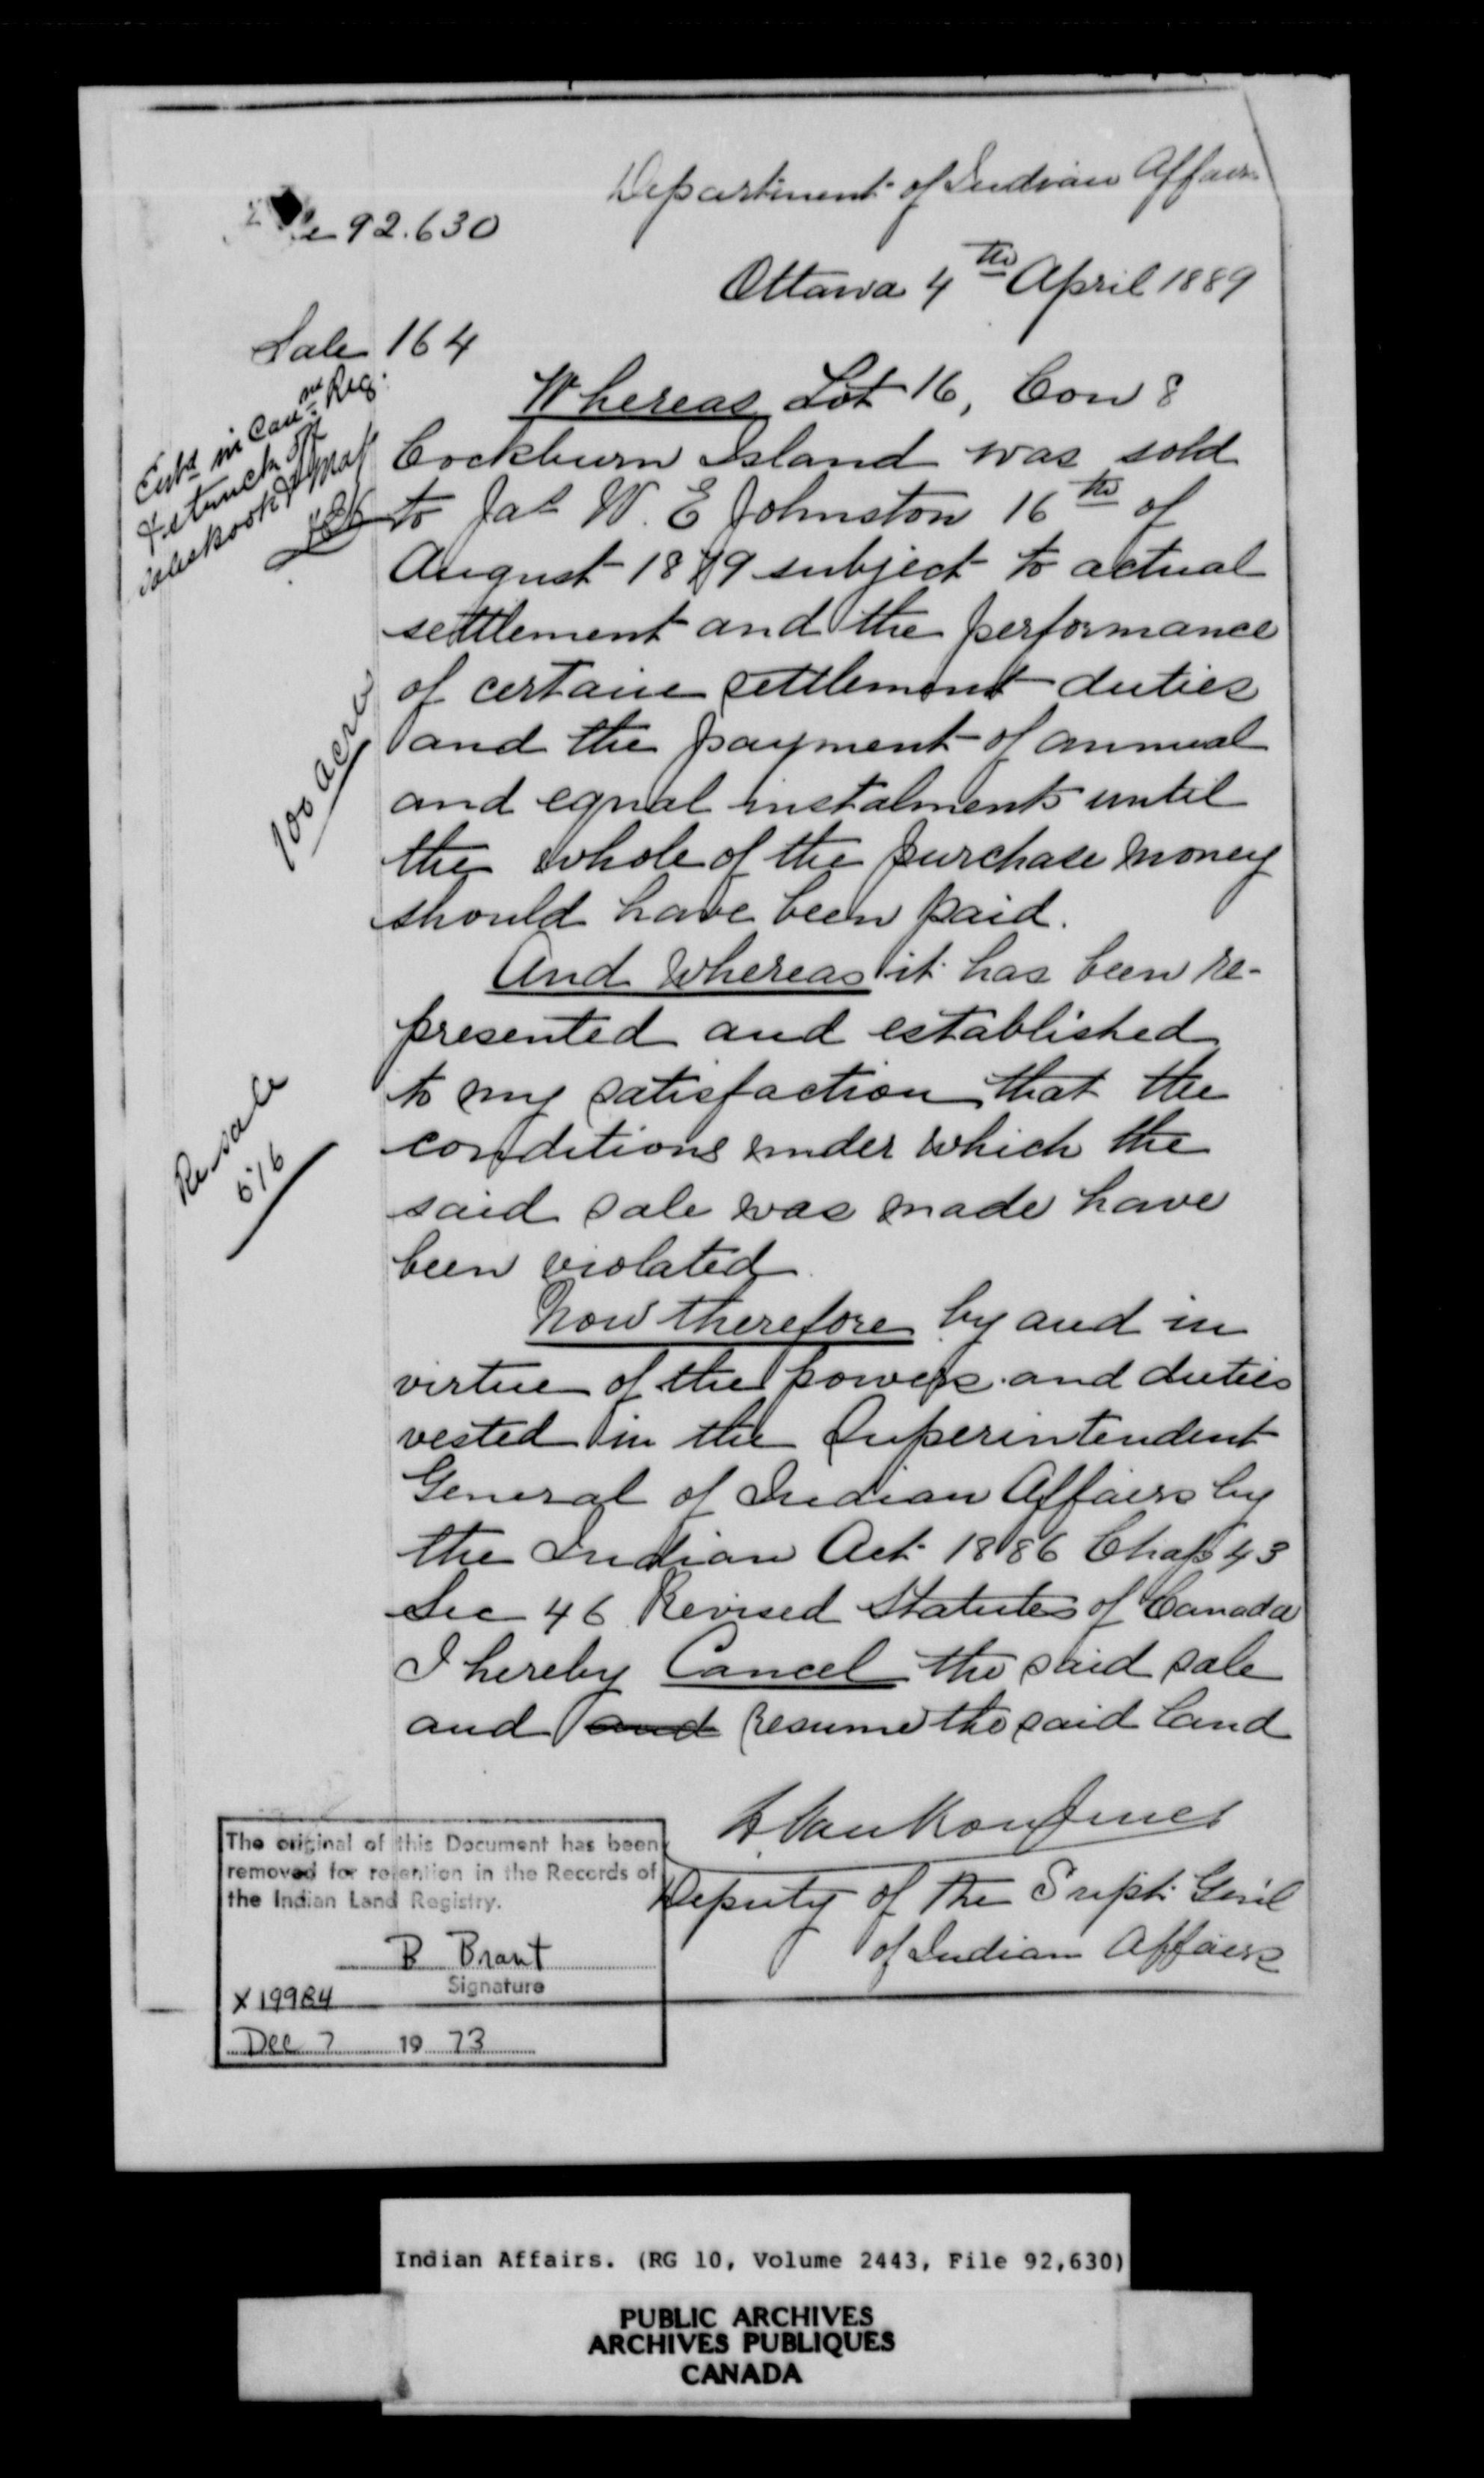 Department of Indian Affairs
92.630
Ottawa 4th April 1889
Sale 164
Entd in Cannt Reg.
& struck off
salesbook & map
100 acres
Resale
516
Whereas Lot 16, Con 8
Cockburn Island was sold
to Jas W. E Johnston 16th of
August 1879 subject to actual
settlement and the performance
of certain settlement duties
and the payment of annual
and equal instalments until
the whole of the purchase money
should have been paid.
And Whereas it has been re-
presented and established
to my satisfaction that the
conditions under which the
said sale was made have
been violated.
Now therefore by and in
virtue of the powers and duties
vested in the Superintendent
General of Indian Affairs by
the Indian Act 1886 Chap 43
Sec 46 Revised Statutes of Canada
I hereby Cancel the said sale
and and resume the said land
L. Vankoughnet
Deputy of the Supt. Genl
of Indian Affairs
The original of this Document has been
removed for retention in the Records of
the Indian Land Registry.
B Brant
Signature
X19984
Dec 7 1973
Indian Affairs. (RG 10, Volume 2443, File 92,630)
PUBLIC ARCHIVES
ARCHIVES PUBLIQUES
CANADA